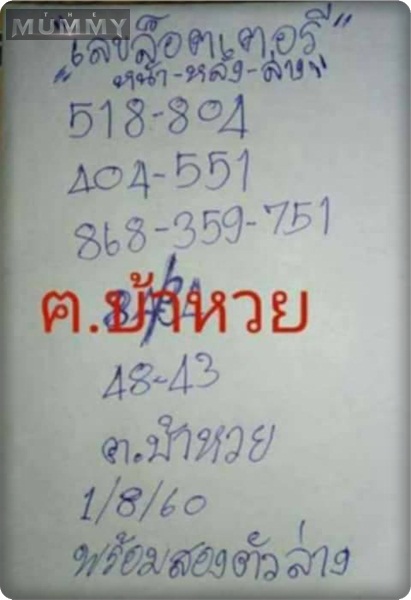 THE
MUMMY
"เลขล็อตเตอรี่"
"หน้า-หลัง-ล่าง"
518-804
404-551
868-359-751
ฅ.บ้าหวย
48-43
ฅ.บ้าหวย
1/8/60
พร้อมสองตัวล่าง